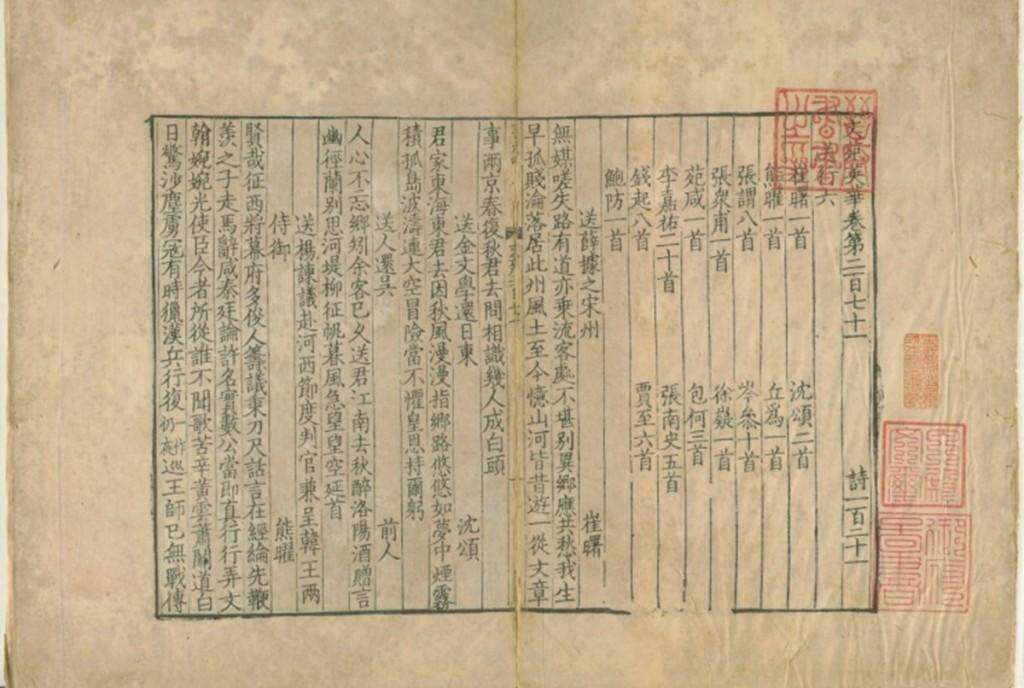 文苑英華卷第二百七十一 詩一百二十一
送行六
崔曙一首 沈頌二首
熊曜一首 丘爲一首
張謂八首 岑參十首
張衆甫一首 徐嶷一首
苑咸一首 包何三首
李嘉祐二十首 張南史五首
錢起八首 賈至六首
鮑防一首
送薛據之宋州 崔曙
無媒嗟失路有道亦乗流客處不堪别異鄉應共愁我生
早孤賤淪落居此州風土至今憶山河皆昔遊一從文章
事兩京春復秋君去問相識幾人成白頭
送金文學還日東 沈頌
君家東海東君去因秋風漫漫指鄉路悠悠如夢中煙霧
積孤島波濤連大空冒險當不懼皇恩持爾躬
送人還吳 前人
人心不忘鄉矧余客已久送君江南去秋醉洛陽酒贈言
幽徑蘭别思河堤柳征帆暮風急望望空延首
送楊諫議赴河西節度判官兼呈韓王兩
侍御 熊曜
賢哉征西將幕府多俊人籌議秉刀尺話言在經綸先鞭
羨之子走馬辭咸秦廷論許名實數公當即真行行弄文
翰婉婉光使臣今者所從誰不聞歌苦辛黄雲蕭關道白
日驚沙塵虜冦有時獵漢兵行復仍作夜巡王師已無戰傳